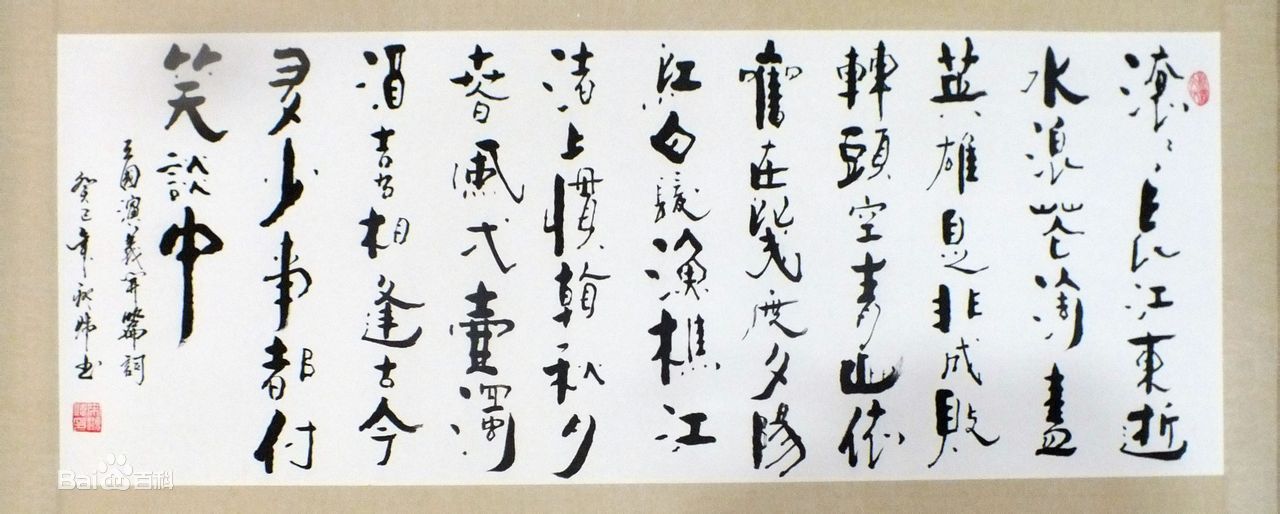 滚々長江東逝
水浪花淘盡
英雄是非成敗
轉頭空青山依
舊在幾度夕陽
紅白髮漁樵江
渚上慣看秋月
春風弌壺濁
酒喜相逢古今
多少事都付
笑談中
三國演義開篇詞
癸巳年书
Bai百科